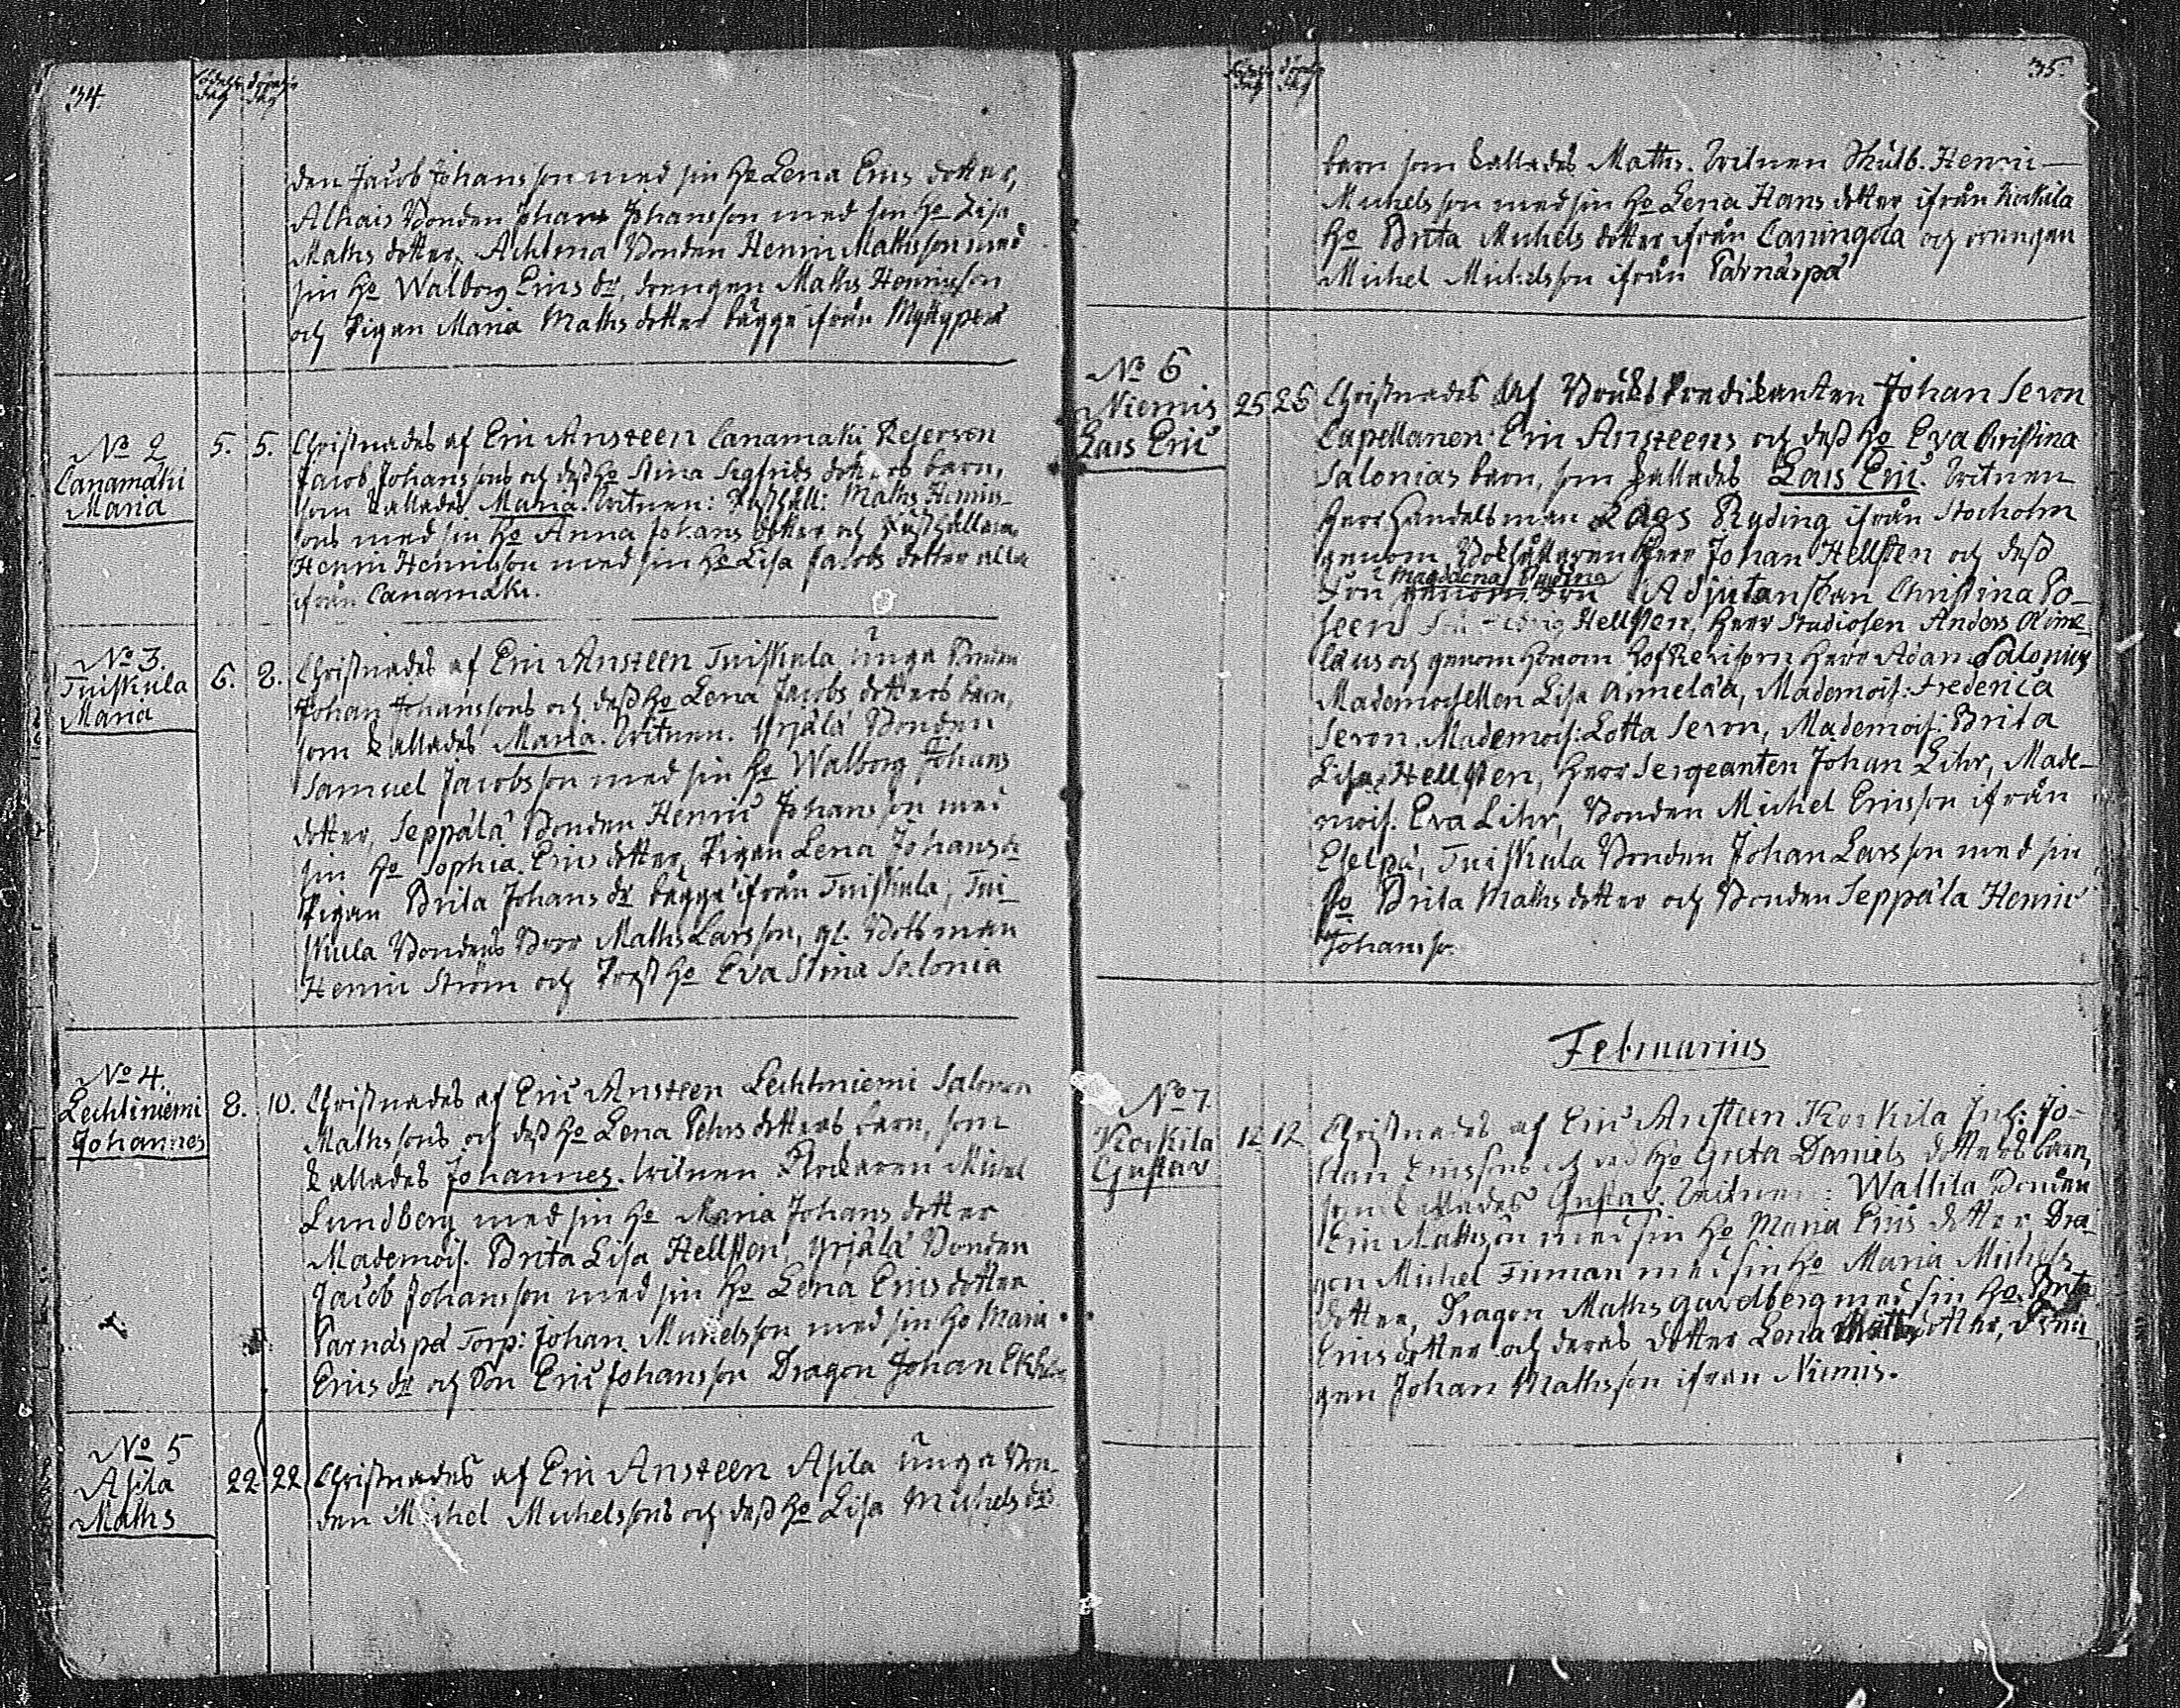 34.
födelse dag
döpelse dag
den Jacob Johansson med sin ho Lena Erics dotter,
Alhais Bonden Johan Johansson med sin ho Lisa
Maths dotter, Achtma Bonden Henric Mathsson med
sin ho Walborg Erics dr, drengen Maths Henricsson
och Pigan Maria Maths dotter bägge ifrån Myttyperä
No 2
Canamäki
Maria
5. 5.
Christnades af Eric Ansteen Canamäki
Jacob Johanssons och dess ho Stina Sigfrids dotters barn,
som kallades Maria. Witnen: Rusthåll: Maths Henrics-
sons med sin ho Anna Johans dotter och Rusthållaren
Henric Henricsson med sin ho Lisa Jacobs dotter alla
ifrån Canamäki.
No 3.
Tuiskula
Maria
6. 8.
Christnades af Eric Ansteen Tuiskula unga Bonden
Johan Johanssons och dess ho Lena Jacobs dotters barn,
som kallades Maria. Witnen. Yrjälä Bonden
Samuel Jacobsson med sin ho Walborg Johans
dotter, Seppälä Bonden Henric Johansson med
sin ho Sophia Erics dotter, Pigan Lena Johans dr
Pigan Brita Johans dr bägge ifrån Tuiskula, Tui-
skula Bondens Bror Maths Larsson, gl. Båtsman
Henric Ström och dess ho Eva Stina Salonia
No 4.
Lechtiniemi
Johannes
8. 10.
Christnades af Eric Ansteen Lechtiniemi Salomon
Mathssons och dess ho Lena Pehrs dotters barn, som
kallades Johannes. Witnen Klockaren Michel
Lundberg med sin ho Maria Johans dotter
Mademois. Brita Lisa Hellsten, Yrjälä Bonden
Jacob Johansson med sin ho Lena Erics dotter
Pärnäspä Torp: Johan Michelsson med sin ho Maria
Erics dr och Son Eric Johansson Dragon Johan
No 5
Asila
Maths
22 22
Christnades af Eric Ansteen Asila unga Bon-
den Michel Michelssons och dess ho Lisa Michels drs
35.
födelse dag
döpelse dag
barn som kallades Maths. Witnen Skattb. Henric
Michelsson med sin ho Lena Hans dotter ifrån Kockila
ho Brita Michels dotter ifrån Caningola och drengen
Michel Michelsson ifrån Pärnäspä
No 6
Niemis
Lars Eric
25 26
Christnades af Bruks Predikanten Johan Seron
Capellanen Eric Ansteens och dess ho Eva Christina
Salonias barn, som kallades Lars Eric. Witnen
Herr Handelsman Lars Ryding ifrån Stocholm
genom Bokhållaren Herr Johan Hellsten och dess
Magdalena
Fru genom Fru Adjutanskan Christina Po-
seen Hellsten, Herr Studiosen Anders Aime-
läus och genom honom Hof Revisorn Herr Adam Salonius
Mademoisellen Lisa Aimeläa, Mademois: Frederica
Seron, Mademois: Lotta Seron, Mademois: Brita
Lisa Hellsten, Herr Sergeanten Johan Lihr, Made-
mois. Eva Lihr, Bonden Michel Ericsson ifrån
Eselpä, Tuiskula Bonden Johan Larsson med sin
ho Brita Maths dotter och Bonden Seppälä Henric
Johansso.
Februarius
No 7.
Kockila
Gustav
12 12
Christnades af Eric Ansteen Kockila Inh: Jo-
han Ericssons och dess ho Greta Daniels dotters barn,
som kallades Gustav. Witnen: Wallila Bonden
Eric Mathsson med sin ho Maria Erics dotter Dra-
gon Michel Finman med sin ho Maria Michels
dotter, Dragon Maths Gavelberg med sin ho Brita
Erics dotter och deras dotter Lena Maths dotter, dren-
gen Johan Mathsson ifrån Niemis.